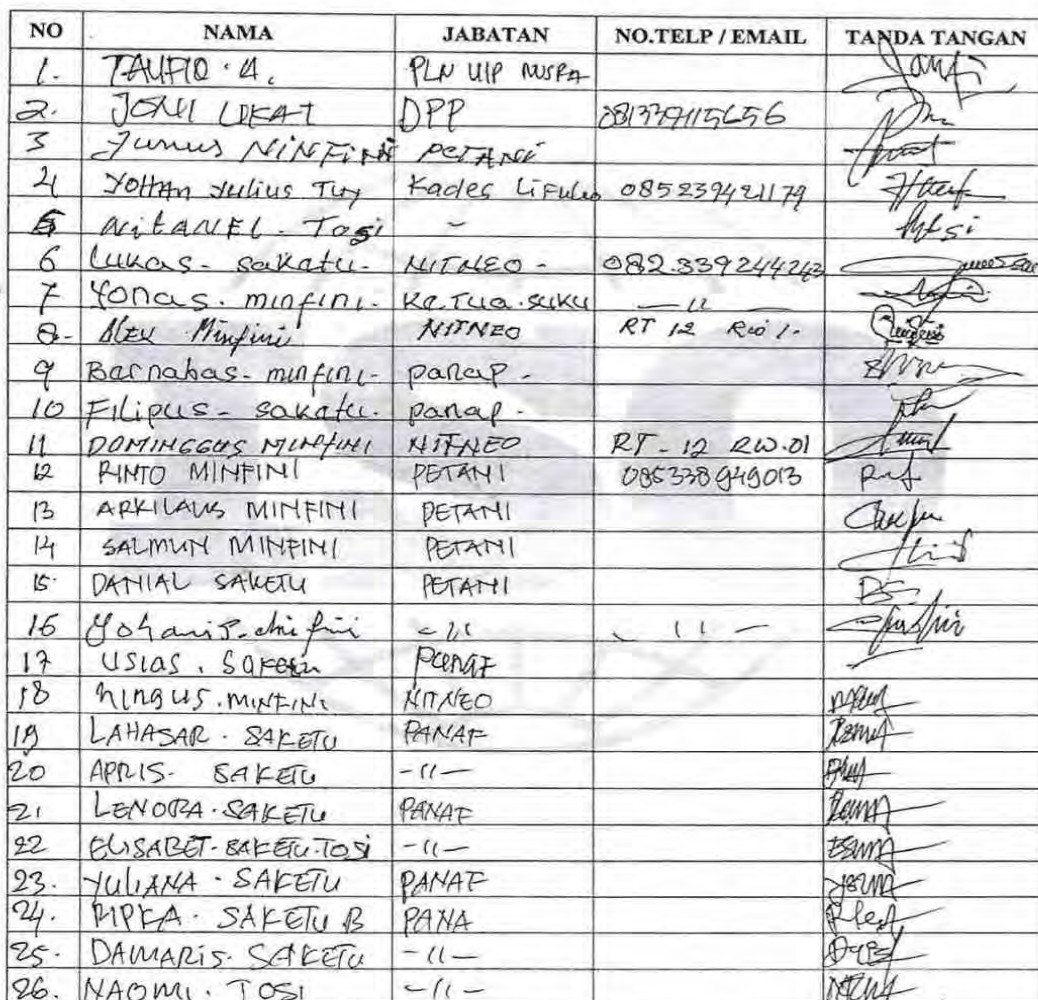 NO NAMA JABATAN NO.TELP / EMAIL TANDA TANGAN
1. TAUFIQ . A. PLN UIP NUSRA
2. JONI LOKAT DPP
3 Junus NINFINI PETANI
4 YOHAN Julius Tuy Kades Lifuleo 085239421179
5 NITANEL - Tosi -
6 Lukas - Saketu - NITNEO - 082.339244243
7 Yonas . minfini - Ke.Tua.suku — 11 —
8- Alex Minfini NITNEO RT 12 RW 1.
9 Barnabas - minfini - panap -
10 Filipus - saketu. panap -
11 DOMINGGUS MINFINI NITNEO RT - 12 RW.01
12 RINTO MINFINI PETANI 085338949013
13 ARKILAUS MINFINI PETANI
14 SALMUN MINFINI PETANI
15. DANIAL SAKETU PETANI
16 - 11 - 11 -
17 USIAS . Saketu Panaf
18 Ningus . MINFINI NITNEO
19 LAHASAR . SAKETU PANAF
20 APRIS - SAKETU - 11 -
21 LENORA . SAKETU PANAF
22 ELISABET - SAKETU - TOSI - 11 -
23. YULIANA . SAKETU PANAF
24. RIPKA . SAKETU B PANA
25. DAMARIS . SAKETU - 11 -
26. NAOMI . TOSI - 11 -